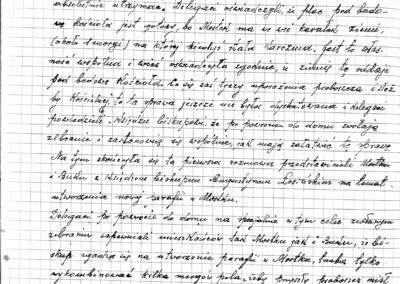 absolutnie utrzymać. Delegaci oświadczyli, że plac pod budo-
wę kościoła jest gotowy, bo Mostek ma w wsi kawałek ziemi,
(około 1 morgi) na której kiedyś stała karczma. Jest to włas-
ność wspólna i wieś oświadczyła zgodnie, że ziemię tę oddaje
pod budowę Kościoła. Co się zaś tyczy uposażenia proboszcza i służ
by Kościelnej, to ta sprawa jeszcze nie była dyskutowana i delegaci
powiedzieli Księdzu biskupowi, że po powrocie do domu zwołają
zebranie i zastanowią się wspólnie, jak mają załatwić tę sprawę.
Na tym skończyła się ta pierwsza rozmowa przedstawicieli Mostku
i Buku z Księdzem biskupem Augustynem Łosińskim na temat
utworzenia nowej parafii w Mostku.
Delegaci po powrocie do domu na specjalnie w tym celu zwołanym
zebraniu zapewniali mieszkańców tak Mostku jak i Buku, że bi-
skup zgadza się na utworzenie parafii w Mostku, trzeba tylko
wykombinować kilka morgów pola, żeby przyszły proboszcz miał